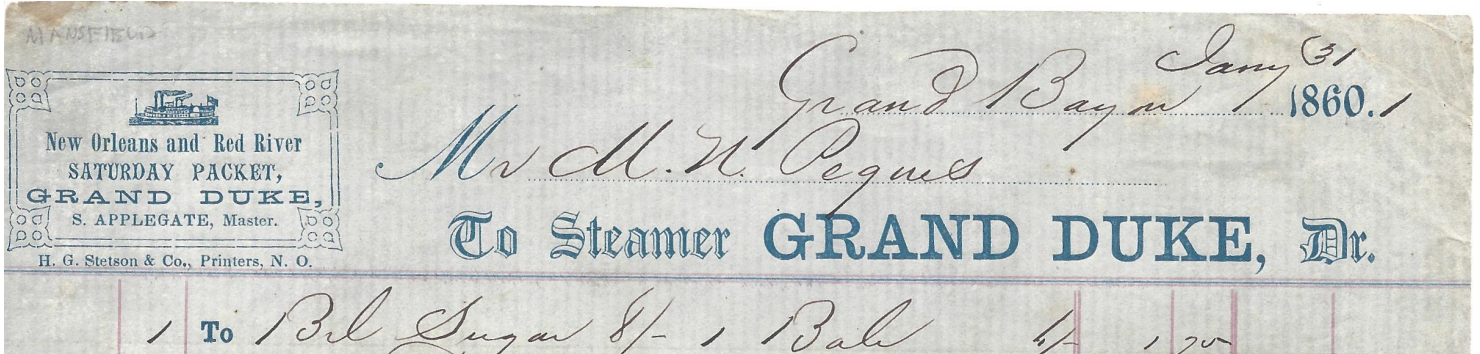 MANSFIELD
New Orleans and Red River
SATURDAY PACKET,
GRAND DUKE,
S. APPLEGATE, Master.
H. G. Stetson & Co., Printers, N. O.
Grand Bayu Jany 31 1860.1
Mr M. N. Pegues
To Steamer GRAND DUKE, Dr.
1 To Brl Sugar 8/- 1 Bale 4/- 1 75